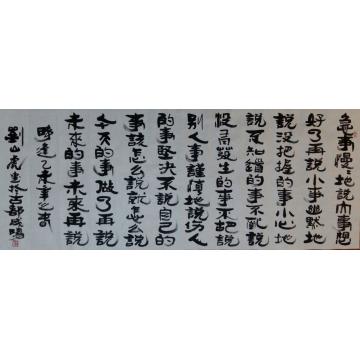 急事慢々地說大事想
好了再說小事幽默地
說沒把握的事小心地
說不知道的事不亂說
沒有發生的事不胡說
别人事謹慎地說傷人
的事堅決不說自己的
事該怎么說就怎么說
今天的事做了再說
未來的事未來再說
時逢乙未年之春
劉山虎書於古都咸陽